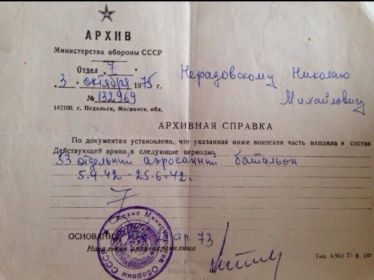 АРХИВ
Министерства обороны СССР
Отдел 7
3 октября 1975 г.
№ 132969
142100, г. Подольск, Московск. обл.
Нерадовскому Николаю
Михайловичу
АРХИВНАЯ СПРАВКА
По документам установлено, что указанная ниже воинская часть входила в состав
Действующей армии в следующие периоды:
53 отдельный аэросанный батальон
5.4.42 - 25.6.42г.
7
ОСНОВАНИЕ
73
Начальник
Архив Министерства Обороны СССР
Тип. АМО